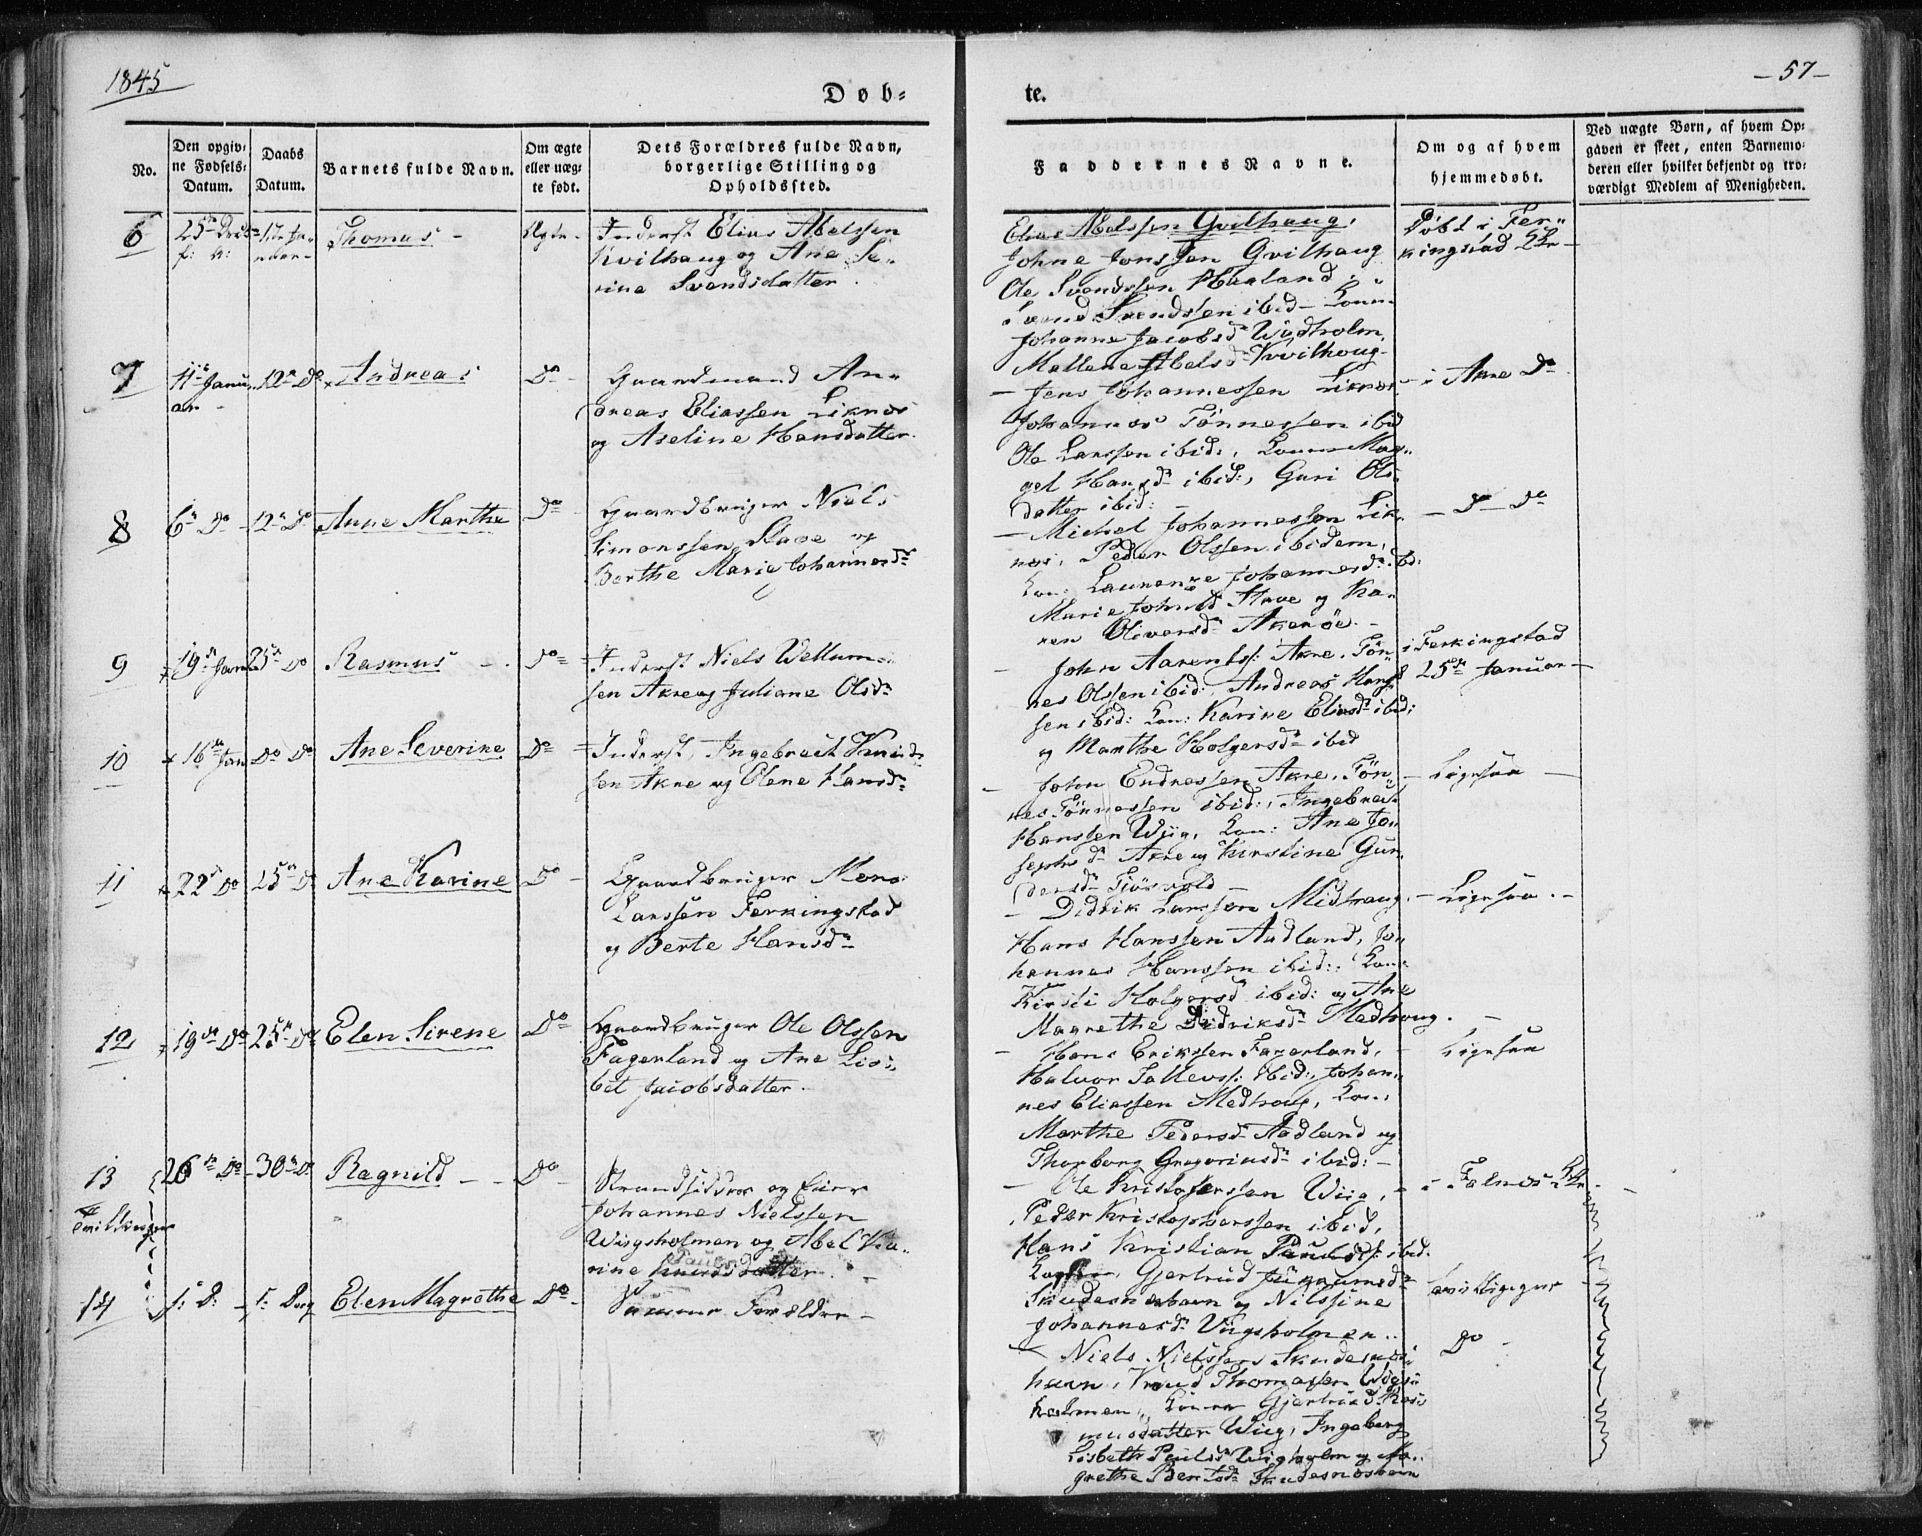 1845
— 57 —
Døb=
te.
No.
Den opgiv=
ne Fødsels=
Datum.
Daabs
Datum.
Barnets fulde Navn.
Om ægte
eller uæg=
te født.
Dets Forældres fulde Navn,
borgerlige Stilling og
Opholdssted.
Faddernes Navne.
Om og af hvem
hjemmedøbt.
Ved uægte Børn, af hvem Op=
gaven er skeet, enten Barnemo=
deren eller hvilket bekjendt og tro=
værdigt Medlem af Menigheden.
6
Thomas —
Ægte
Inderst Elias Abelssen
Kvilhaug og Ane Se-
rine Svendsdatter
Elias Abelssen Gvilhaug,
Johne Jonssen Gvilhaug
Ole Svendssen Haaland
Svend Svendssen ibid — Kone
Johanne Jacobsd Wydholm,
Mallene Abelsd Kvilhoug
Døbt i Fer-
kingstad K
7
11 Janu-
ar
12 Do
Andreas
Do
Gaardmand An-
dreas Eliassen Liknes
og Aseline Hansdatter.
— Jens Johannessen Liknes
Johannes Tønnessen ibid
Ole Larssen ibid:, Kone Mar-
get Hansd ibid:, Guri Ols-
datter ibid:
i Akre Do
8
6 Do
12 Do
Anne Marthe
Do
Gaardbruger Niels
Simonssen Stave og
Berthe Marie Johannesd
— Michel Johannessen Lik-
nes, Peder Olssen ibidem,
Kon: Laurense Johannesd ibd:
Marie Johnsd Stave og Ka-
ren Oliversd Akerøe. —
— D — Do
9
19 Janu
25 Do
Rasmus
Do
Inderst Niels Wellum-
sen Akre og Juliane Olsd
— John Aarentss: Akre. Tøn-
nes Olssen ibid:, Andreas Hans-
sen ibid: Kon: Karine Eliasd ibid;
og Marthe Holgersd ibid
i Ferkingstad
25 Januar —
10
16 Jan
Do Do
Ane Severine
Do
Inderst, Ingebreit Knud-
sen Akre og Elene Hansd
— John Endressen Akre, Tøn-
nes Tønnessen ibid:, Ingebreit
Hanssen Wiig, Kon: Ane Jo-
sephsd Akre og Kirstine Gun-
dersd Tjøsvold —
— Ligesaa —
11
22 Do
25 D
Ane Karine
Do
Gaardbruger Mons
Larssen Ferkingstad
og Berte Hansd
— Didrik Larssen Midhaug.
Hans Hanssen Aadland, Jo-
hannes Hanssen ibid:. Kon:
Kirsti Holgersd ibid: og Ane
Magrethe Didriksd Medhoug.
— Ligesaa. —
12
19 Do
25 Do
Elen Sirene
Do
Gaardbruger Ole Olssen
Fagerland og Ane Lis-
bet Jacobsdatter.
— Hans Erikssen Fagerland,
Halvor Tallevss: ibid:, Johan-
nes Eliassen Medhoug, Kon:
Marthe Pedersd Aadland og
Thorborg Gregoriusd ibid: —
Ligesaa
13
Tvillinger
26 Do
30 D
Ragnild — —
Do
Strandsidder og Eier
Johannes Nielssen
Wiigsholmen og Abel Ka-
rine
— Ole Kristofersen Wiig,
Peder Kristopherssen ibid,
Hans Kristian Paulss: ibid.
Gjertrud
Skudesnæshavn og Nilssine
Johannesd Viigsholmen..
i Falnes K
Tvillinger
14
s: D:
s: Dag
Elen Magrethe
Do
Samme Forældre —
— Niels Nielssen Skudesnæs-
havn, Knud Thomassen Wiigs-
holmen, Konen Gjertrud Ras-
musdatter Wiig, Ingeborg
Lisbeth Paulsd Wiigholm og Ma-
grethe Bentsd Skudesnæshavn
Do